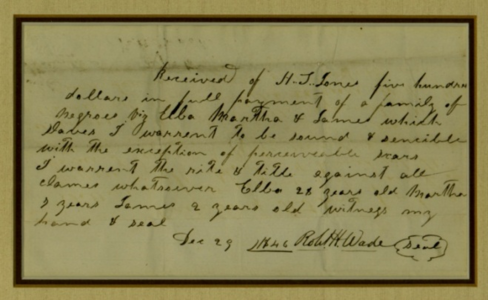 Received of H. T. Jones five hundre
dollars in full payment of a family of
Negroes viz Elba Martha & James which
Slaves I warrent to be sound & sencible
with the exception of perceiveable scars
I warrent the rite & title against all
clames whatsoever Elba 28 years old Martha
years James 2 years old witness my
hand & seal
Dec 29 1846 Robt H. Wade Seal